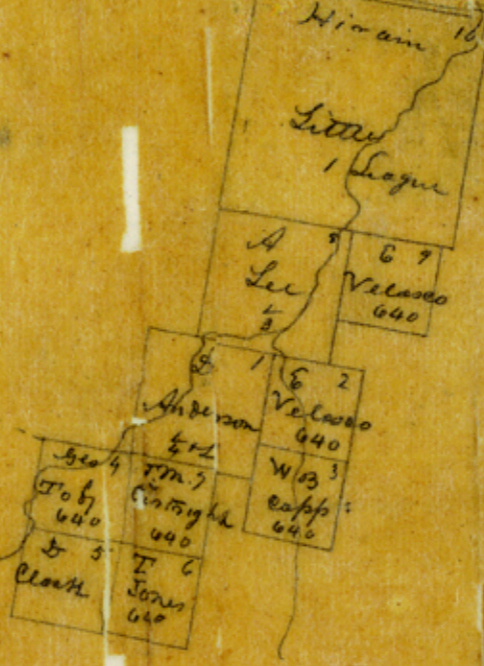 Hiram 16
Little
1 League
A 8
Lee
L
3
E 9
Velasco
640
D 1
Anderson
E 2
Velasco
640
Geo 4
Toby
640
T M. 7
640
W B 3
Capp
640
D 5
Clark
T 6
Jones
640